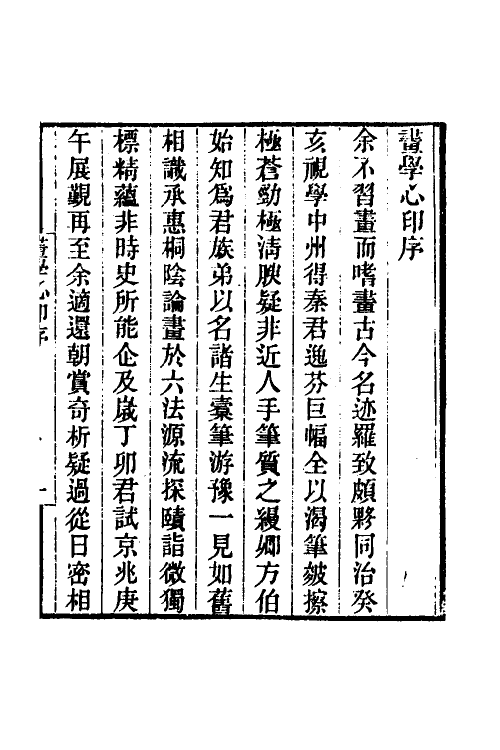 畫學心印序
余不習畫而嗜畫古今名迹羅致頗夥同治癸
亥視學中州得秦君逸芬巨幅全以渴筆皴擦
極蒼勁極淸腴疑非近人手筆質之縵卿方伯
始知爲君族弟以名諸生橐筆游豫一見如舊
相識承惠桐陰論畫於六法源流探賾詣微獨
標精蘊非時史所能企及歲丁卯君試京兆庚
午展覲再至余適還朝賞奇析疑過從日密相
畫學心印序
一